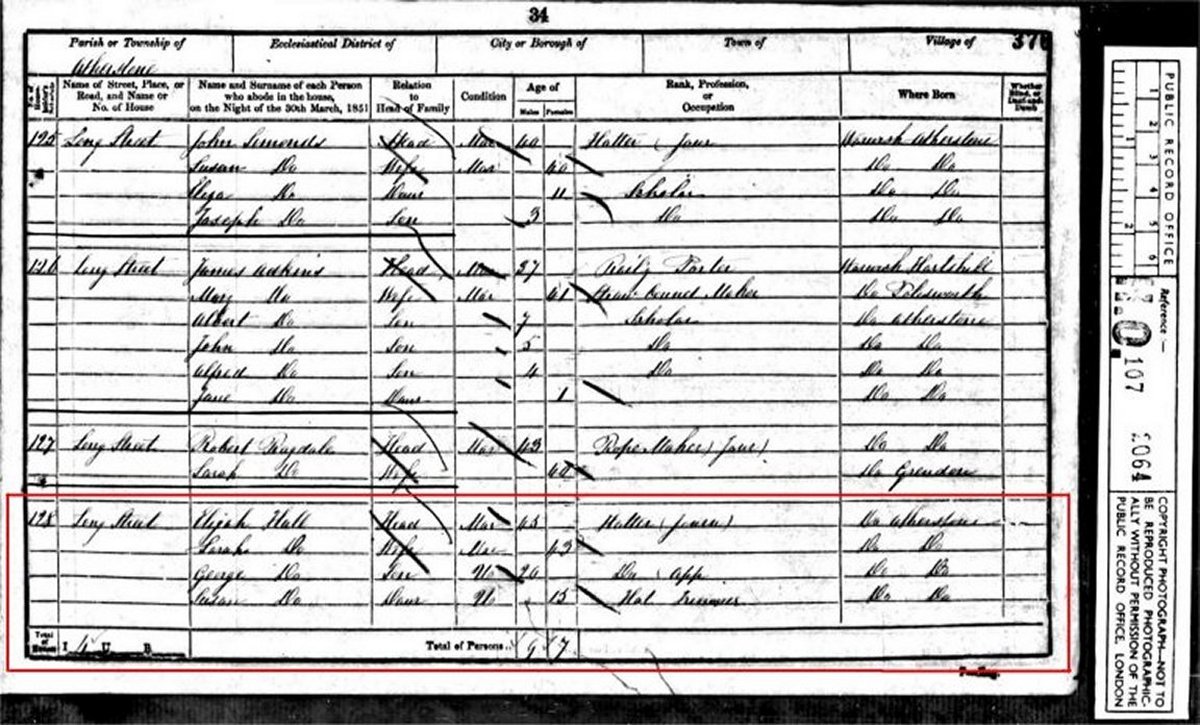 34
Parish or Township of Ecclesiastical District of City or Borough of Town of Village of 37
Atherstone
Name of Street, Place, or Road, and Name or No. of House
Name and Surname of each Person who abode in the house, on the Night of the 30th March, 1851
Relation to Head of Family
Condition
Age of
Males Females
Rank, Profession, or Occupation
Where Born
Whether Blind, or Deaf-and-Dumb
125 Long Street John Simonds Head Mar 40 Hatter (Jour Warwsh Atherstone
Susan Do Wife Mar 40 Do Do
Eliza Do Daur 11 Scholar Do Do
Joseph Do Son 3 Do Do Do
126 Long Street James Adkins Head Mar 37 Railwy Porter Warwsh Hartshill
Mary Do Wife Mar 41 Straw Bonnet Maker Do Polesworth
Albert Do Son 7 Scholar Do Atherstone
John Do Son 5 Do Do Do
Alfred Do Son 4 Do Do Do
Jane Do Daur 1 Do Do
127 Long Street Robert Ragdale Head Mar 43 Rope Maker (Jour) Do Do
Sarah Do Wife 42 Do Grendon
128 Long Street Elijah Hall Head Mar 45 Hatter (Do Atherstone
Sarah Do Wife Mar 43 Do Do
George Do Son Un 20 Do (App Do Do
Susan Do Daur Un 15 Hat Trimmer Do Do
Total of Houses I 4 U B Total of Persons 9 7
PUBLIC RECORD OFFICE
1 2 3 4 5 6
1 2
Reference:—
107
COPYRIGHT PHOTOGRAPH—NOT TO
BE REPRODUCED PHOTOGRAPHIC-
ALLY WITHOUT PERMISSION OF THE
PUBLIC RECORD OFFICE, LONDON